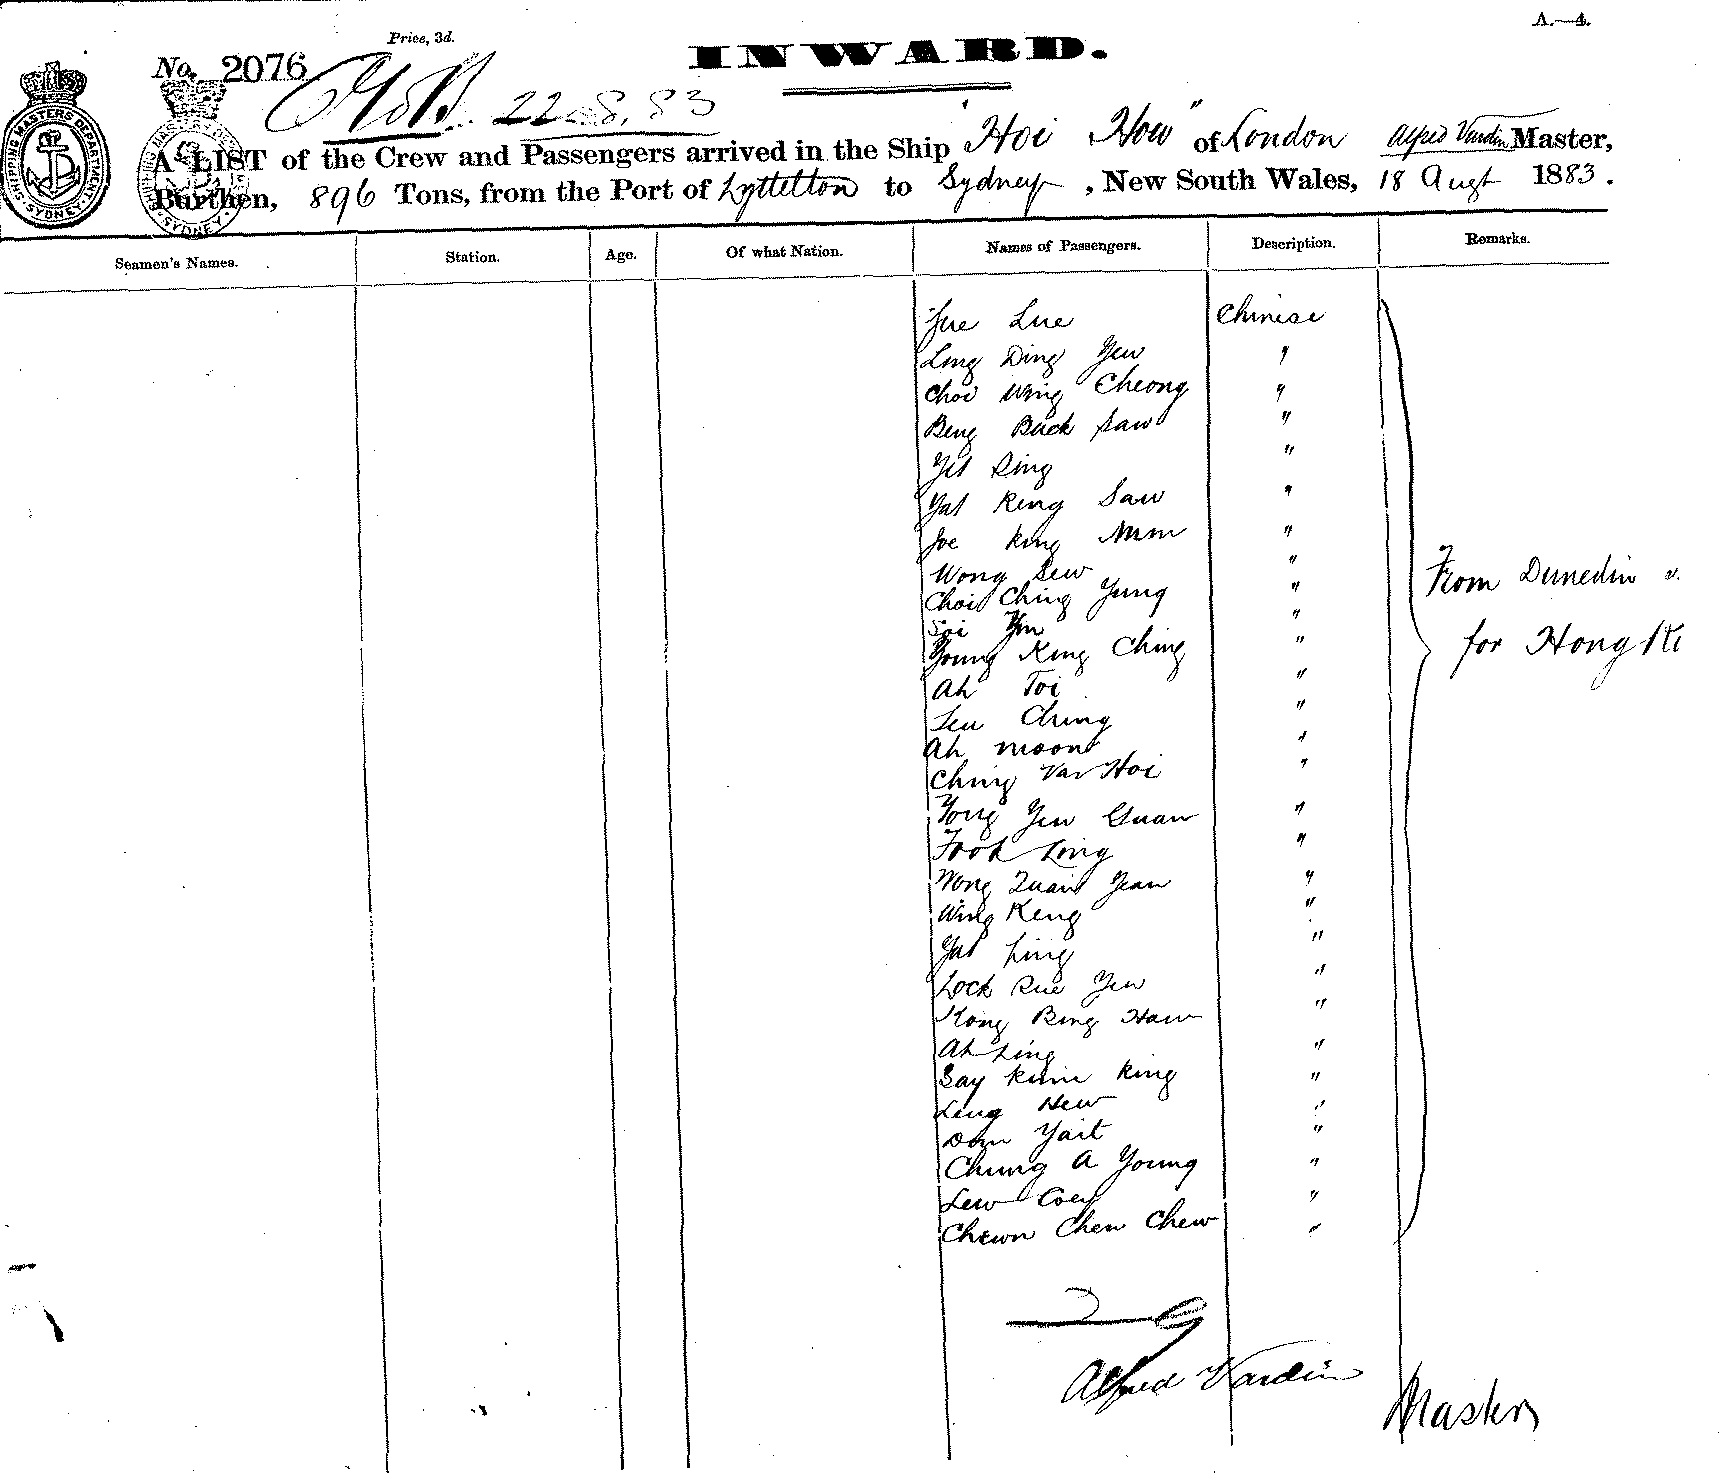 A.—4.
Price, 3d.
INWARD.
No. 2076
22.8.83
SHIPPING MASTERS DEPARTMENT SYDNEY
A LIST of the Crew and Passengers arrived in the Ship "Hoi How" of London Alfred Vardin Master,
Burthen, 896 Tons, from the Port of Lyttelton to Sydney, New South Wales, 18 Augt 1883.
Seamen's Names. Station. Age. Of what Nation. Names of Passengers. Description. Remarks.
Yue Lue Chinese
Ling Ding Yew "
Choi Wing Cheong "
Beng Buck Saw "
Yit Ring "
Yat Keng Saw "
Joe King "
Wong Sew "
Choi Ching Yung "
Soi Yin "
Young King Ching "
Ah Toi "
Leu Ching "
Ah Moon "
Ching Van Hoi "
Yong Yew Guan "
Fook Ling "
Wong Quan Yean "
Wing Keng "
Yat Ling "
Lock Rue Yew "
Kong Bing Haw "
Ah Ling "
Say King "
Ling Hew "
Dom Yait "
Chung A Young "
Lew Coey "
Chewn Chen Chew "
From Dunedin
for Hong K
Alfred Vardin
Master